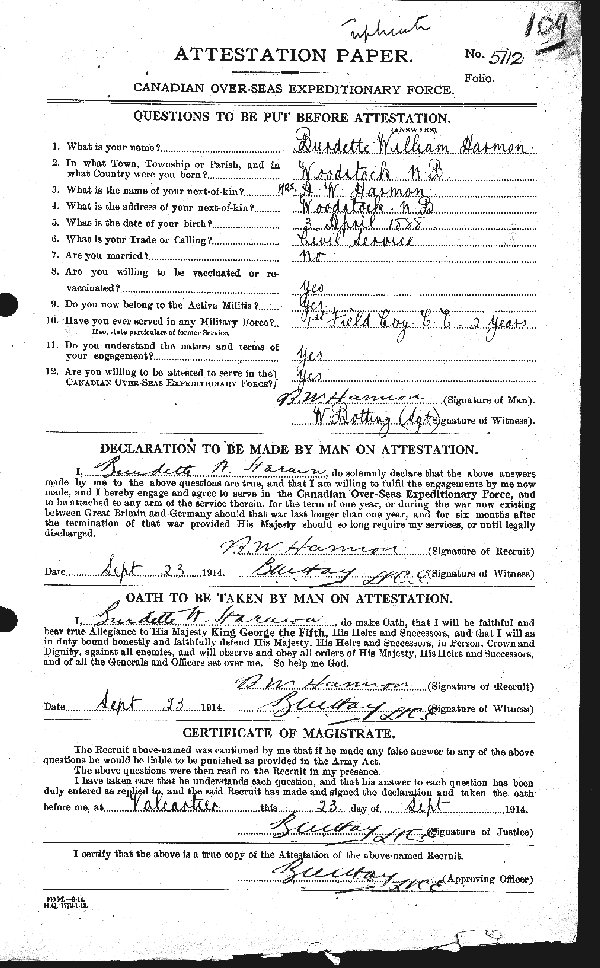 104
ATTESTATION PAPER.
No. 5112
Folio.
CANADIAN OVER-SEAS EXPEDITIONARY FORCE.
QUESTIONS TO BE PUT BEFORE ATTESTATION.
(ANSWERS)
1. What is your name? Burdette William Harmon
2. In what Town, Township or Parish, and in
what Country were you born? Woodstock N B
3. What is the name of your next-of-kin? Mrs. W Harmon
4. What is the address of your next-of-kin? Woodstock N B
5. What is the date of your birth? 3 April 1888
6. What is your Trade or Calling? Civil Service
7. Are you married? No
8. Are you willing to be vaccinated or re-
vaccinated? Yes
9. Do you now belong to the Active Militia? Yes
10. Have you ever served in any Military Force? 1st Field Coy. C E 2 Years
If so, state particulars of former Service.
11. Do you understand the nature and terms of
your engagement? Yes
12. Are you willing to be attested to serve in the Yes
CANADIAN OVER-SEAS EXPEDITIONARY FORCE?
B W Harmon (Signature of Man).
W Botting (Sgt) (Signature of Witness).
DECLARATION TO BE MADE BY MAN ON ATTESTATION.
I, Burdette W Harmon, do solemnly declare that the above answers
made by me to the above questions are true, and that I am willing to fulfil the engagements by me now
made, and I hereby engage and agree to serve in the Canadian Over-Seas Expeditionary Force, and
to be attached to any arm of the service therein, for the term of one year, or during the war now existing
between Great Britain and Germany should that war last longer than one year, and for six months after
the termination of that war provided His Majesty should so long require my services, or until legally
discharged.
B W Harmon (Signature of Recruit)
Date Sept 23 1914. (Signature of Witness)
OATH TO BE TAKEN BY MAN ON ATTESTATION.
I, Burdette W Harmon, do make Oath, that I will be faithful and
bear true Allegiance to His Majesty King George the Fifth, His Heirs and Successors, and that I will as
in duty bound honestly and faithfully defend His Majesty, His Heirs and Successors, in Person, Crown and
Dignity, against all enemies, and will observe and obey all orders of His Majesty, His Heirs and Successors,
and of all the Generals and Officers set over me. So help me God.
B W Harmon (Signature of Recruit)
Date Sept 23 1914. (Signature of Witness)
CERTIFICATE OF MAGISTRATE.
The Recruit above-named was cautioned by me that if he made any false answer to any of the above
questions he would be liable to be punished as provided in the Army Act.
The above questions were then read to the Recruit in my presence.
I have taken care that he understands each question, and that his answer to each question has been
duly entered as replied to, and the said Recruit has made and signed the declaration and taken the oath
before me, at Valcartier this 23 day of Sept 1914.
(Signature of Justice)
I certify that the above is a true copy of the Attestation of the above-named Recruit.
(Approving Officer)